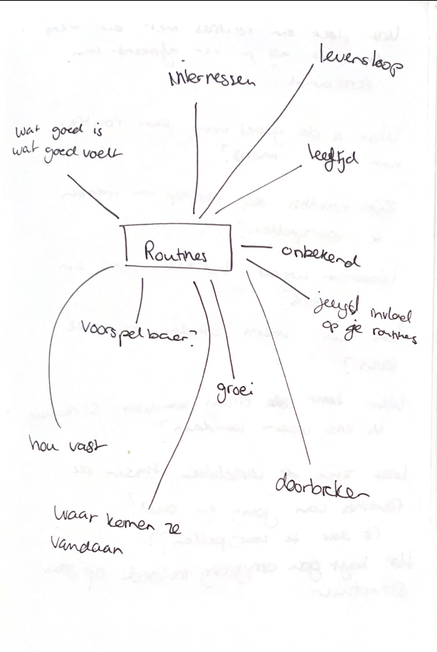 Interressen
levensloop
wat goed is
wat goed voelt
leeftijd
Routines
onbekend
jeugd invloed
op je routines
Voorspelbaar?
groei
hou vast
doorbreken
Waar komen ze
vandaan